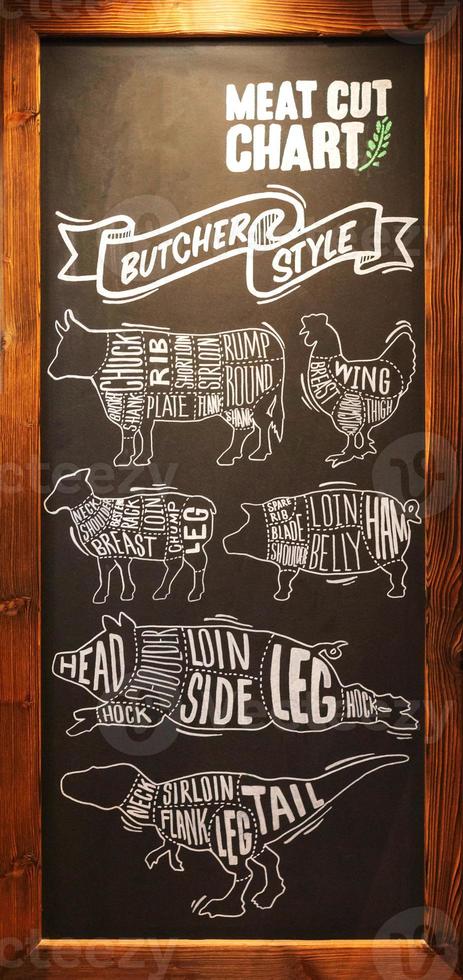 MEAT CUT
CHART
BUTCHER
STYLE
CHUCK
RIB
SHORT LOIN
SIRLOIN
RUMP
ROUND
SHANK
PLATE
FLANK
SHANK
BREAST
WING
THIGH
NECK
SHOULDER
BEST END
RACK
LOIN
CHUMP
LEG
BREAST
SPARE
RIB
BLADE
SHOULDER
LOIN
BELLY
HAM
HEAD
SHOULDER
LOIN
SIDE
LEG
HOCK
HOCK
NECK
SIRLOIN
FLANK
LEG
TAIL